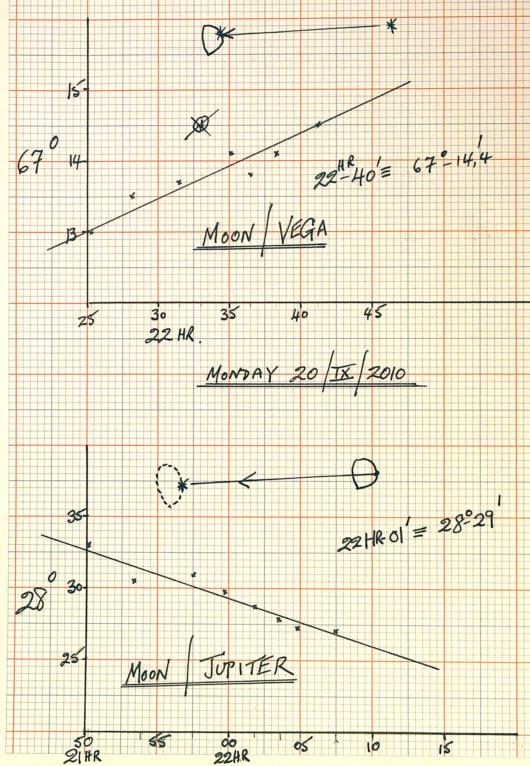 15
67° 14
22HR-40' ≡ 67°-14,'4
13
MOON / VEGA
25 30 35 40 45
22 HR.
MONDAY 20/IX/2010
35
22HR-01' ≡ 28°-29'
28° 30
25
MOON / JUPITER
50 55 00 05 10 15
21HR 22HR